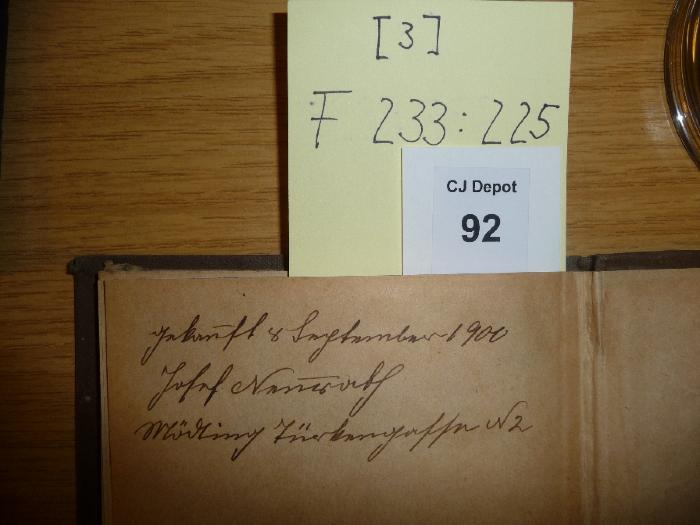 [3]
F 233:225
CJ Depot
92
gekauft 8 September 1900
Josef
Mödling Türkengasse N2